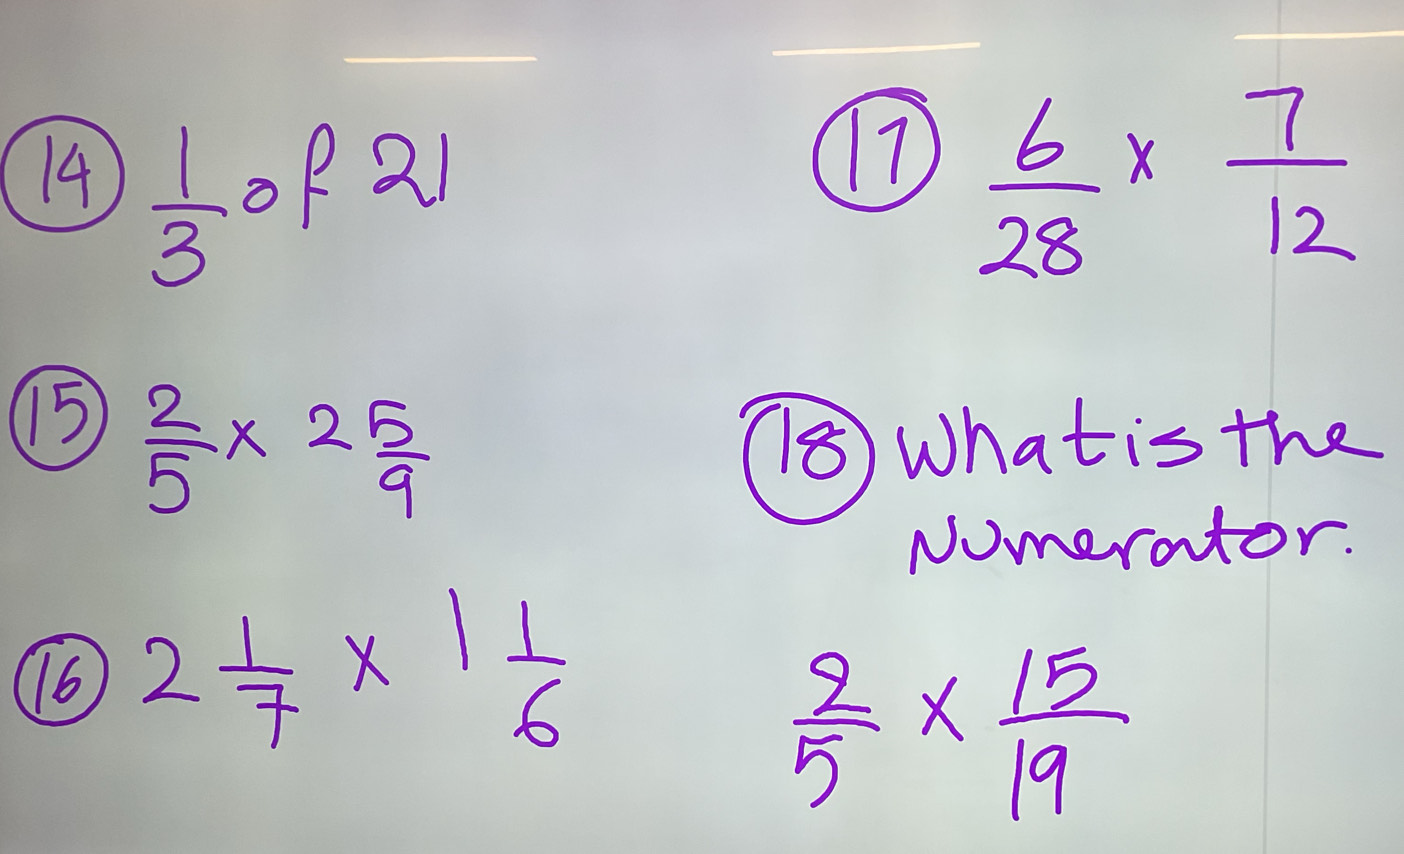 14 1/3 of 21
15 2/5 x 2 5/9
16 2 1/7 x 1 1/6
17 6/28 x 7/12
18 What is the
Numerator.
2/5 x 15/19